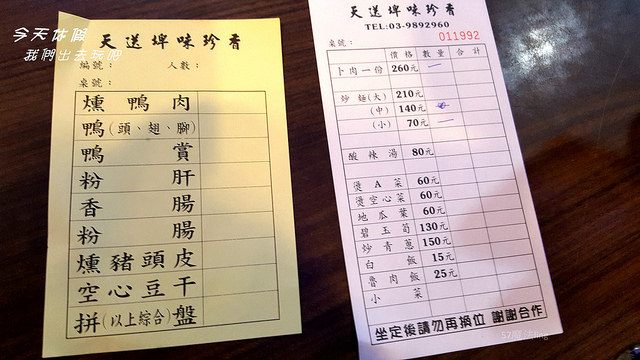 今天休假
我們出去玩吧
天送埤味珍香
編號: 人數:
桌號:
燻鴨肉
鴨(頭、翅、腳)
鴨賞
粉肝
香腸
粉腸
燻豬頭皮
空心豆干
拼(以上綜合)盤
天送埤味珍香
TEL:03-9892960
桌號: 011992
價格 數量 合計
卜肉一份 260元
炒麵(大) 210元
(中) 140元
(小) 70元
酸辣湯 80元
燙A菜 60元
燙空心菜 60元
地瓜葉 60元
碧玉筍 130元
炒青蔥 150元
白飯 15元
魯肉飯 25元
小菜
坐定後請勿再換位 謝謝合作